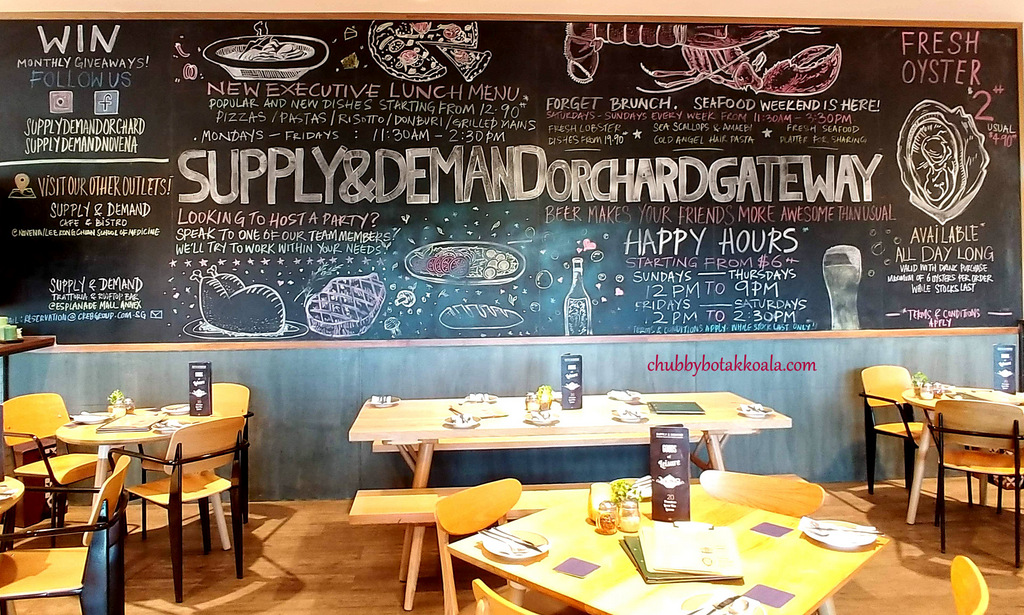 WIN
MONTHLY GIVEAWAYS!
FOLLOW US
SUPPLYDEMANDORCHARD
SUPPLYDEMANDNOVENA
VISIT OUR OTHER OUTLETS!
SUPPLY & DEMAND
CAFE & BISTRO
@NOVENA/LEE KONG CHIAN SCHOOL OF MEDICINE
SUPPLY & DEMAND
TRATTORIA & ROOFTOP BAR
@ESPLANADE MALL ANNEX
RESERVATION@CREBGROUP.COM.SG
NEW EXECUTIVE LUNCH MENU
POPULAR AND NEW DISHES STARTING FROM 12.90++
PIZZAS / PASTAS / RISOTTO / DONBURI / GRILLED MAINS
MONDAYS - FRIDAYS : 11:30AM - 2:30PM
FORGET BRUNCH. SEAFOOD WEEKEND IS HERE!
SATURDAYS - SUNDAYS EVERY WEEK FROM 11:30AM - 3:30PM
FRESH LOBSTER DISHES FROM 19.90
SEA SCALLOPS & AMAEBI COLD ANGEL HAIR PASTA
FRESH SEAFOOD PLATTER FOR SHARING
SUPPLY&DEMANDORCHARDGATEWAY
LOOKING TO HOST A PARTY?
SPEAK TO ONE OF OUR TEAM MEMBERS
WE'LL TRY TO WORK WITHIN YOUR NEEDS
BEER MAKES YOUR FRIENDS MORE AWESOME THAN USUAL
HAPPY HOURS
STARTING FROM $6++
SUNDAYS — THURSDAYS
12PM TO 9PM
FRIDAYS — SATURDAYS
2PM TO 2:30PM
TERMS & CONDITIONS APPLY. WHILE STOCK LAST ONLY!
FRESH
OYSTER
$2++
USUAL
$4.90++
AVAILABLE
ALL DAY LONG
VALID WITH DRINK PURCHASE
MAXIMUM OF 6 OYSTERS PER ORDER
WHILE STOCKS LAST
*TERMS & CONDITIONS
APPLY
chubbybotakkoala.com
SUPPLY & DEMAND
GOODS
of
Leisure
20